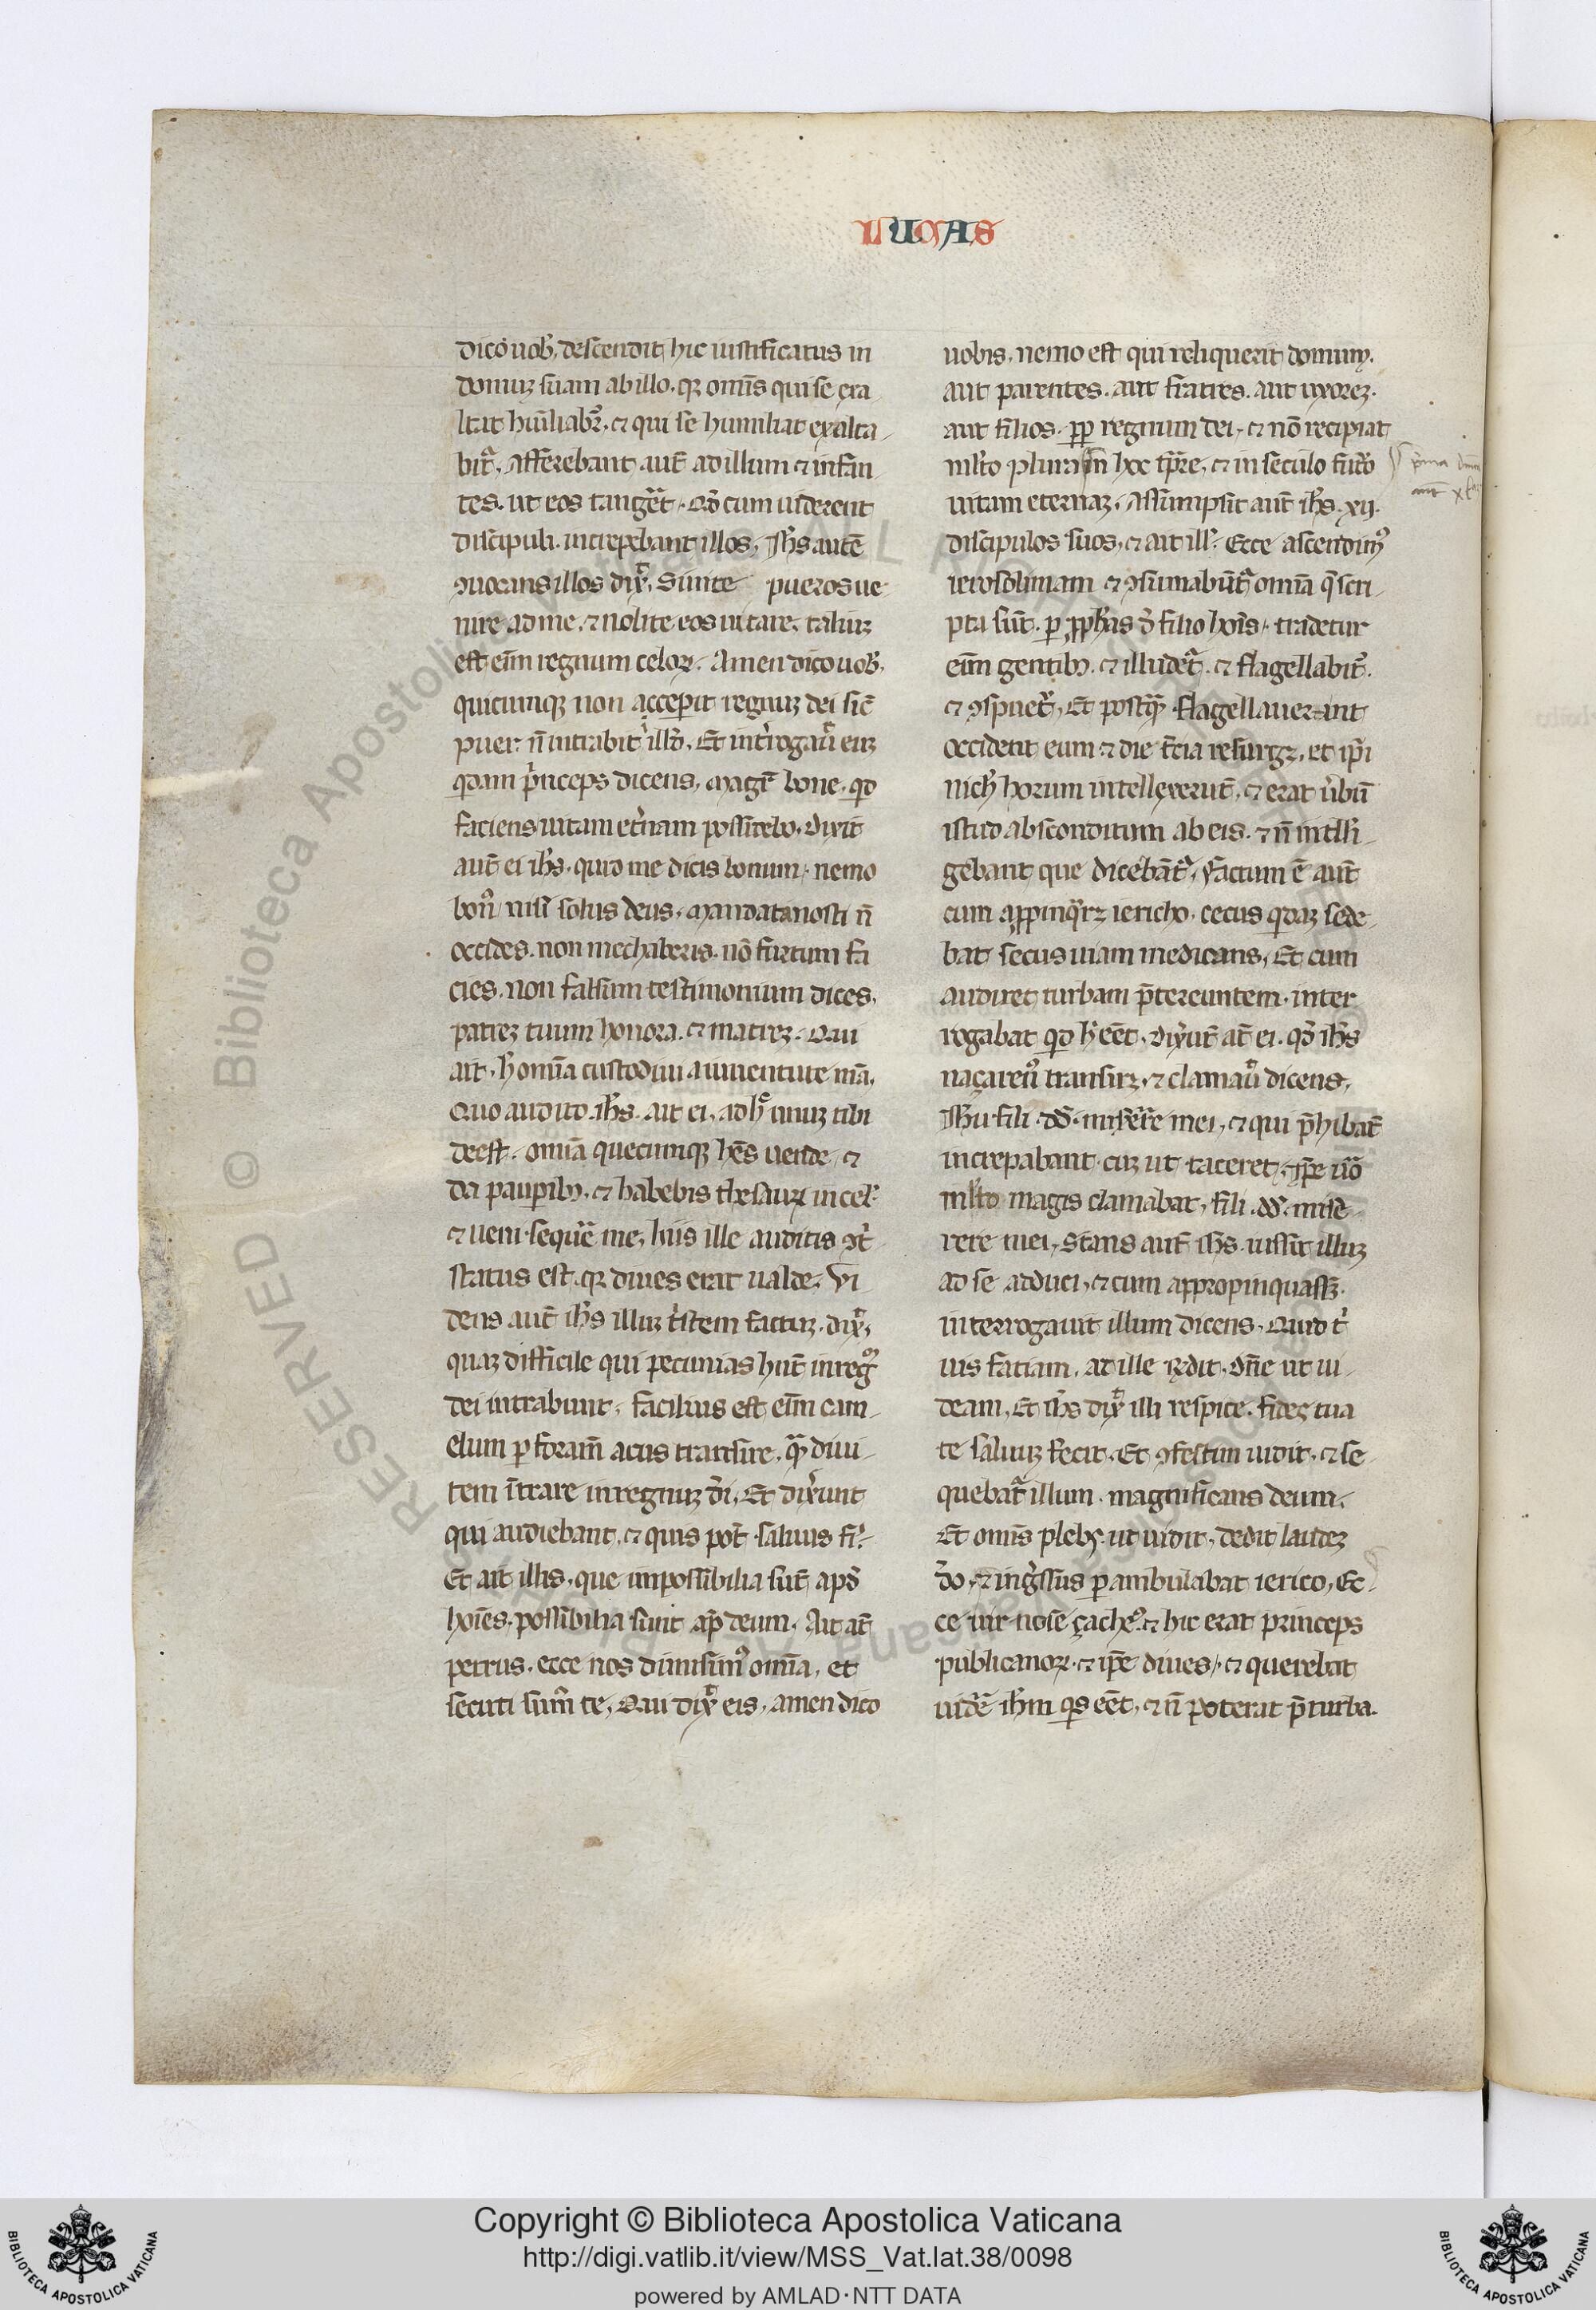 LUCAS
dico uob̄, descendit hic iustificatus in
domuꝫ suam ab illo. qꝛ omīs qui se exa
ltat humiliabit̄, ⁊ qui se humiliat exalta-
bit̄. Afferebant aut̄ ad illum ⁊ infan
tes. ut eos tanger̄t. Qd̄ cum uiderent
discipuli. increpabant illos, Ih̄s autē
ꝯuocans illos dix̄, Sinite pueros ue
nire ad me, ⁊ nolite eos uitare. taliuꝫ
est eīm regnum celoꝝ. Amen dico uob̄,
quicunqꝫ non acceperit regnuꝫ dei sic̄
puer. n̄ intrabit ī illd̄. Et int̄rogau̅ euꝫ
qdam pͥnceps dicens, magr̄ bone. qͥd
faciens uitam et̄nam possidebo. Dixit
aut̄ ei ih̄s. quid me dicis bonum. nemo
bonꝰ nisi solus deus. Mandata nosti n̄
occides. non mechaberis. nō furtum fa
cies. non falsum testimonium dices.
patreꝫ tuum honora. ⁊ matreꝫ. Qui
ait. h̄ omīa custodiui a iuuentute mēa.
Quo audito ih̄s. ait ei, ad hͨ unuꝫ tibi
deest. omīa quecunqꝫ hēs uende. ⁊
da pauꝑibꝫ. ⁊ habebis thesauꝝ in cel̄.
⁊ ueni sequēr me, hiis ille auditis ꝯt̄
status est. qꝛ diues erat ualde. Vi
dens aut̄ ih̄s illuꝫ tͥstem factuꝫ. dix̄,
quaꝫ difficile qui pecunias hn̄t in regnͦ
dei intrabunt. facilius est eīm cam-
elum ꝑ foram̄ acus transire. qͣꝫ diui-
tem īt̄rare in regnuꝫ di̅. Et dix̄unt
qui audiebant. ⁊ quis pot̄ saluus fi̅.
Et ait illis. que impossibilia sūt apd̄
hoīes. possibilia sunt ap̄ deum. Ait at̄
petrus. ecce nos dimisimꝰ omīa. et
secuti sumꝰ te, Qui dix̄ eis. amen dico
uobis. nemo est qui reliquerit domum.
aut parentes. aut fratres. aut uxoreꝫ.
aut filios. ꝓp̄ regnum dei. ⁊ nō recipiat
ml̄to plura in hoc tꝑe̅. ⁊ in seculo futᷓo
uitam eternaꝫ. Assumpsit aut̄ ih̄s. xij.
discipulos suos. ⁊ ait ill̄. Ecce ascendimꝰ
ierosolimam ⁊ ꝯsumabūt̄ omīa q̄ scri-
pta sūt. ꝑ ꝓph̄as d̄ filio hoīs. tradetur
eīm gentibꝫ. ⁊ illudet̄. ⁊ flagellabit̄.
⁊ ꝯspuet̄. Et postqͣꝫ flagellauerint
occident eum ⁊ die t̄cia resurgꝫ. et ip̄i
nichͥ horum intellexerūt. ⁊ erat ūbū
istud absconditum ab eis. ⁊ n̄ intelli-
gebant que dicebāt̄. Factum ē aut̄
cum appinqͣrꝫ iericho. cecus qͥdaꝫ sede-
bat secus uiam medicans. Et cum
audiret turbam p̄tereuntem. inter
rogabat qͥd h̄ eēt. Dix̄ut at̄ ei. qd̄ ih̄s
naçarenꝰ transirꝫ. ⁊ clamau̅ dicens.
Ih̄u fili dd̄. miserēre mei, ⁊ qui p̄hibāt
increpabant euꝫ ut taceret. ip̄e ūo
ml̄to magis clamabat. fili dd̄. mise-
rere mei, Stans aut̄ ih̄s. iussit illuꝫ
ad se adduci. ⁊ cum appropinquassꝫ.
interrogauit illum dicens. Quid tͥ
uis faciam. at ille dix̄it. dn̄e ut ui-
deam. Et ih̄s dix̄ illi respice. fides tua
te saluuꝫ fecit. Et ꝯfestim uidit. ⁊ se-
quebat̄ illum. magnificans deum.
Et omīs plebs. ut uidit. dedit laudeꝫ
dō. ⁊ ingͤssus ꝑambulabat ierico. Ec-
ce uir noīe çacheꝰ. ⁊ hic erat princeps
publicanoꝝ. ⁊ ip̄e diues. ⁊ querebat
uidē ih̄m qͥs eēt. ⁊ n̄ poterat p̄ turba.
Copyright © Biblioteca Apostolica Vaticana
http://digi.vatlib.it/view/MSS_Vat.lat.38/0098
powered by AMLAD·NTT DATA
BIBLIOTECA APOSTOLICA VATICANA
BIBLIOTECA APOSTOLICA VATICANA